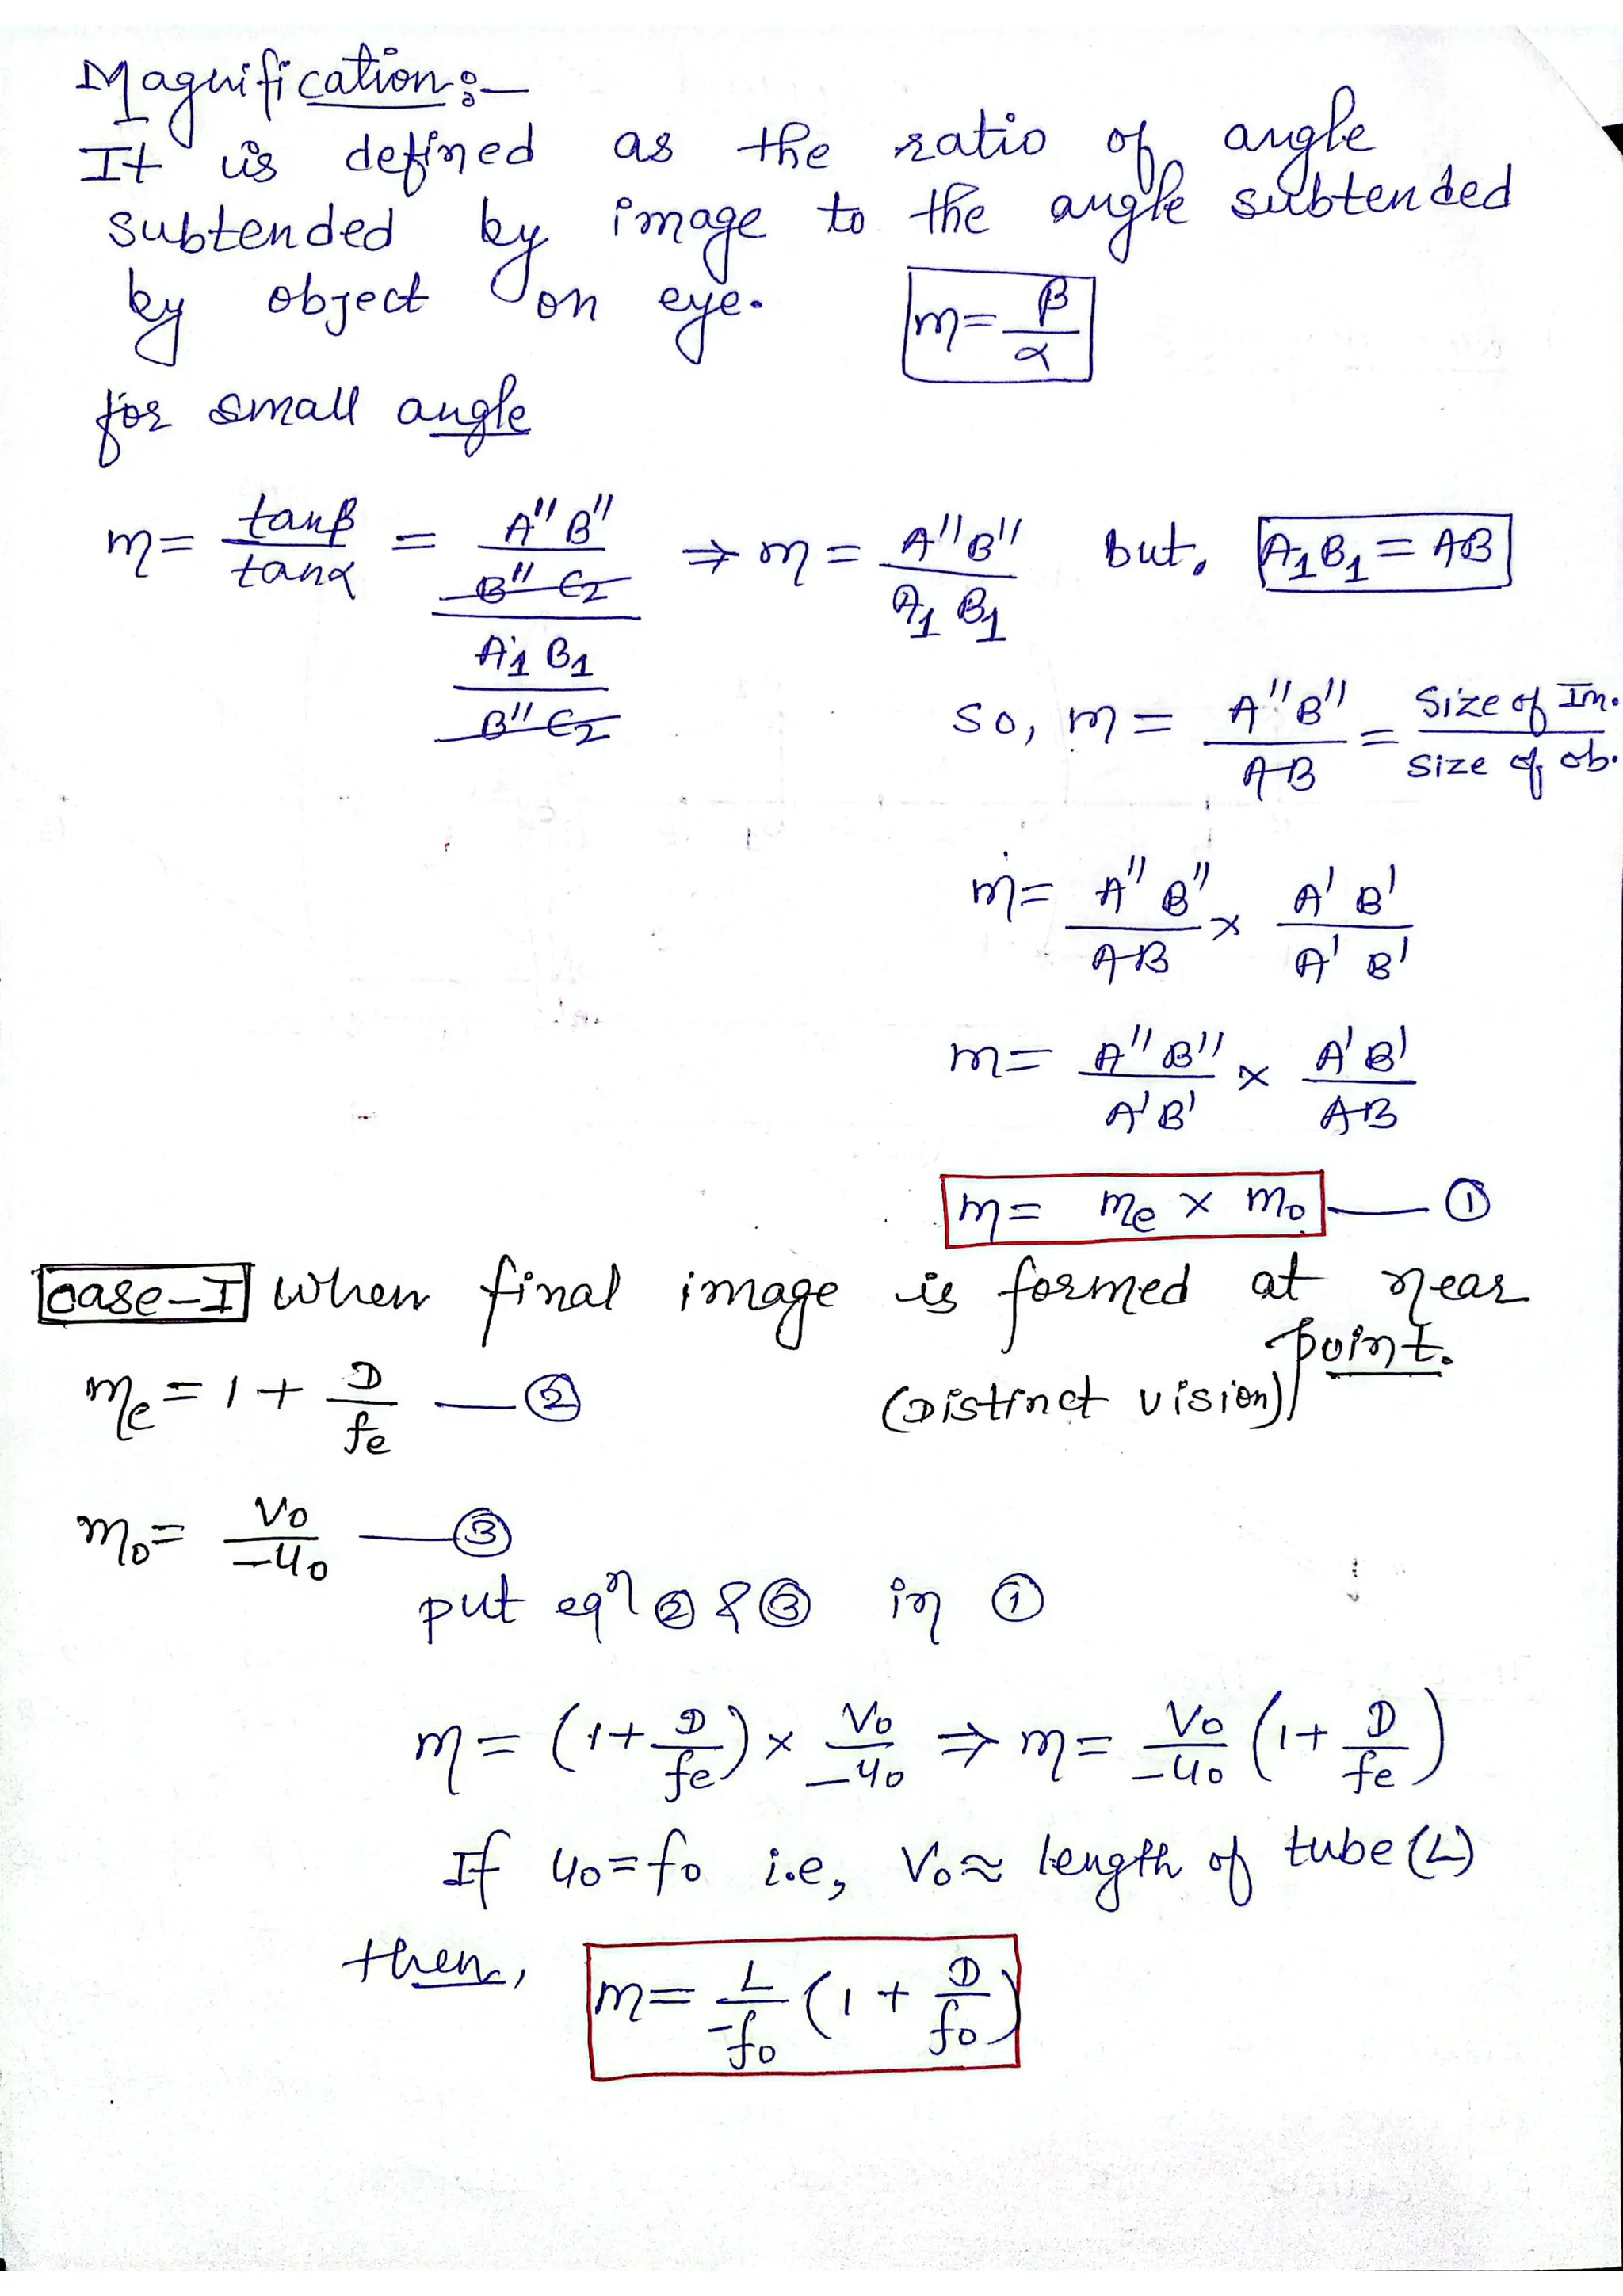 Magnification:-
It is defined as the ratio of angle
subtended by image to the angle subtended
by object on eye. m = β/α
for small angle
m = tanβ/tanα = (A''B''/B''C2)/(A1B1/B''C2) ⇒ m = A''B''/A1B1 but, A1B1 = AB
So, m = A''B''/AB = Size of Im./Size of ob.
m = A''B''/AB × A'B'/A'B'
m = A''B''/A'B' × A'B'/AB
m = me × mo — ①
Case-I When final image is formed at near
point.
(Distinct vision)
me = 1 + D/fe — ②
mo = Vo/-uo — ③
put eqn ② & ③ in ①
m = (1 + D/fe) × Vo/-uo ⇒ m = Vo/-uo (1 + D/fe)
If uo = fo i.e, Vo ≈ length of tube (L)
then, m = L/-fo (1 + D/fo)